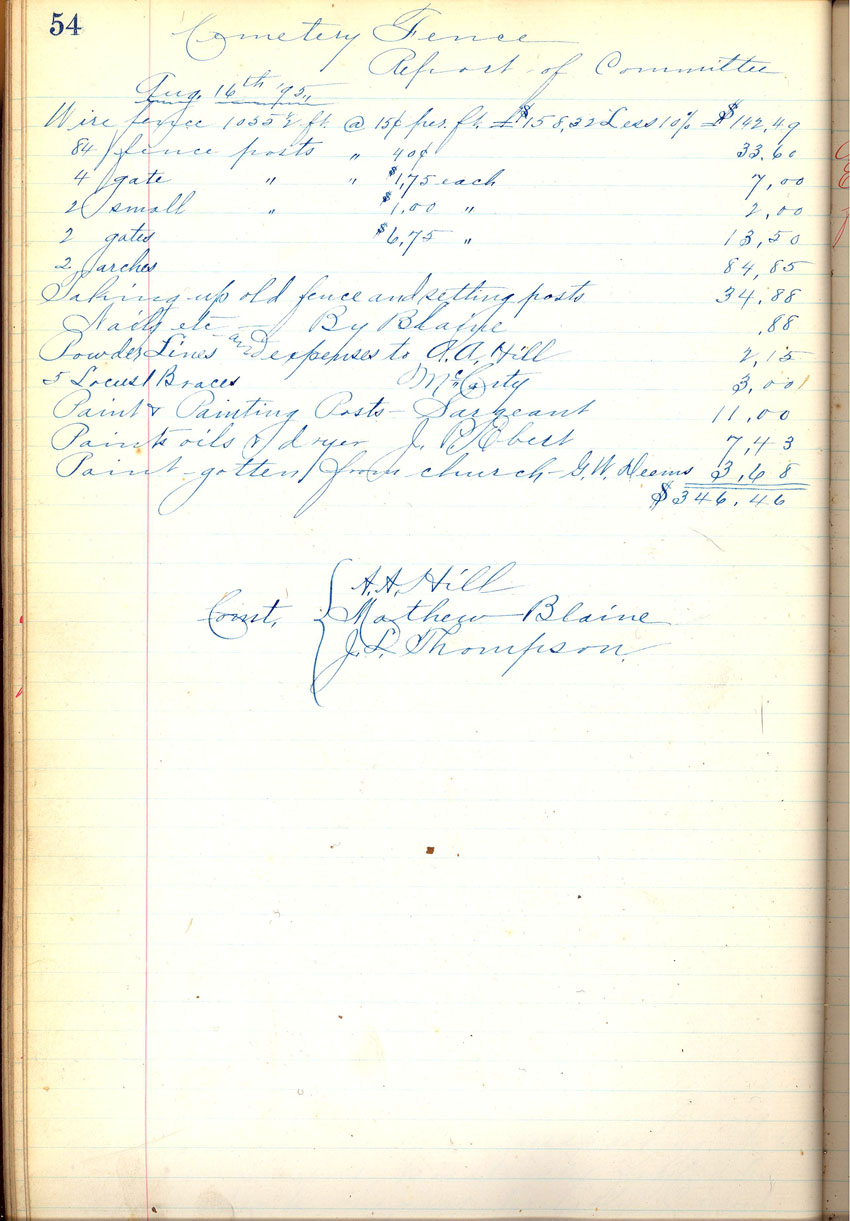 54
Cemetery Fence
Report of Committee
Aug. 16th '95,,
Wire fence 1055½ ft. @ 15¢ per. ft. = $158,32 Less 10% = $142,49
84 fence posts " 40¢ 33.60
4 gate " " $1,75 each 7,00
2 small " $1,00 " 2,00
2 gates $6,75 " 13,50
2 arches 84,85
Taking up old fence and setting posts 34.88
Nails etc — By Blaine .88
Powder Lines and expenses to A.A. Hill 2,15
5 Locust Braces 3,00
Paint & Painting Posts – Sargeant 11,00
Paints oils & dryer J. P. Ebert 7,43
Paint gotten from church – G.W. Deems 3,68
$346.46
Comt. A.A. Hill
Mathew Blaine
J.L. Thompson.